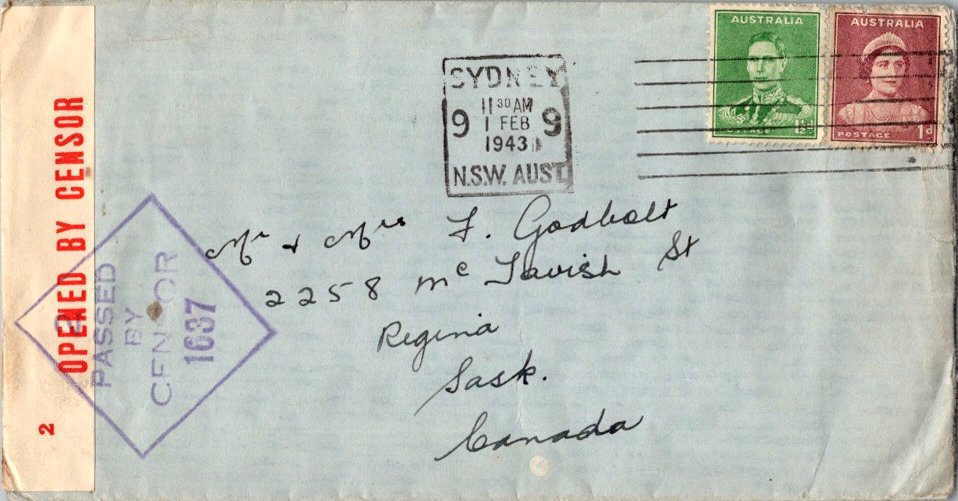 OPENED BY CENSOR
2
2
PASSED
BY
CENSOR
1637
SYDNEY
11 30 AM
9 1 FEB 9
1943
N.S.W. AUST
AUSTRALIA
POSTAGE 1½D
AUSTRALIA
POSTAGE 1d
Mr & Mrs F. Godbolt
2258 Mc Tavish St
Regina
Sask.
Canada